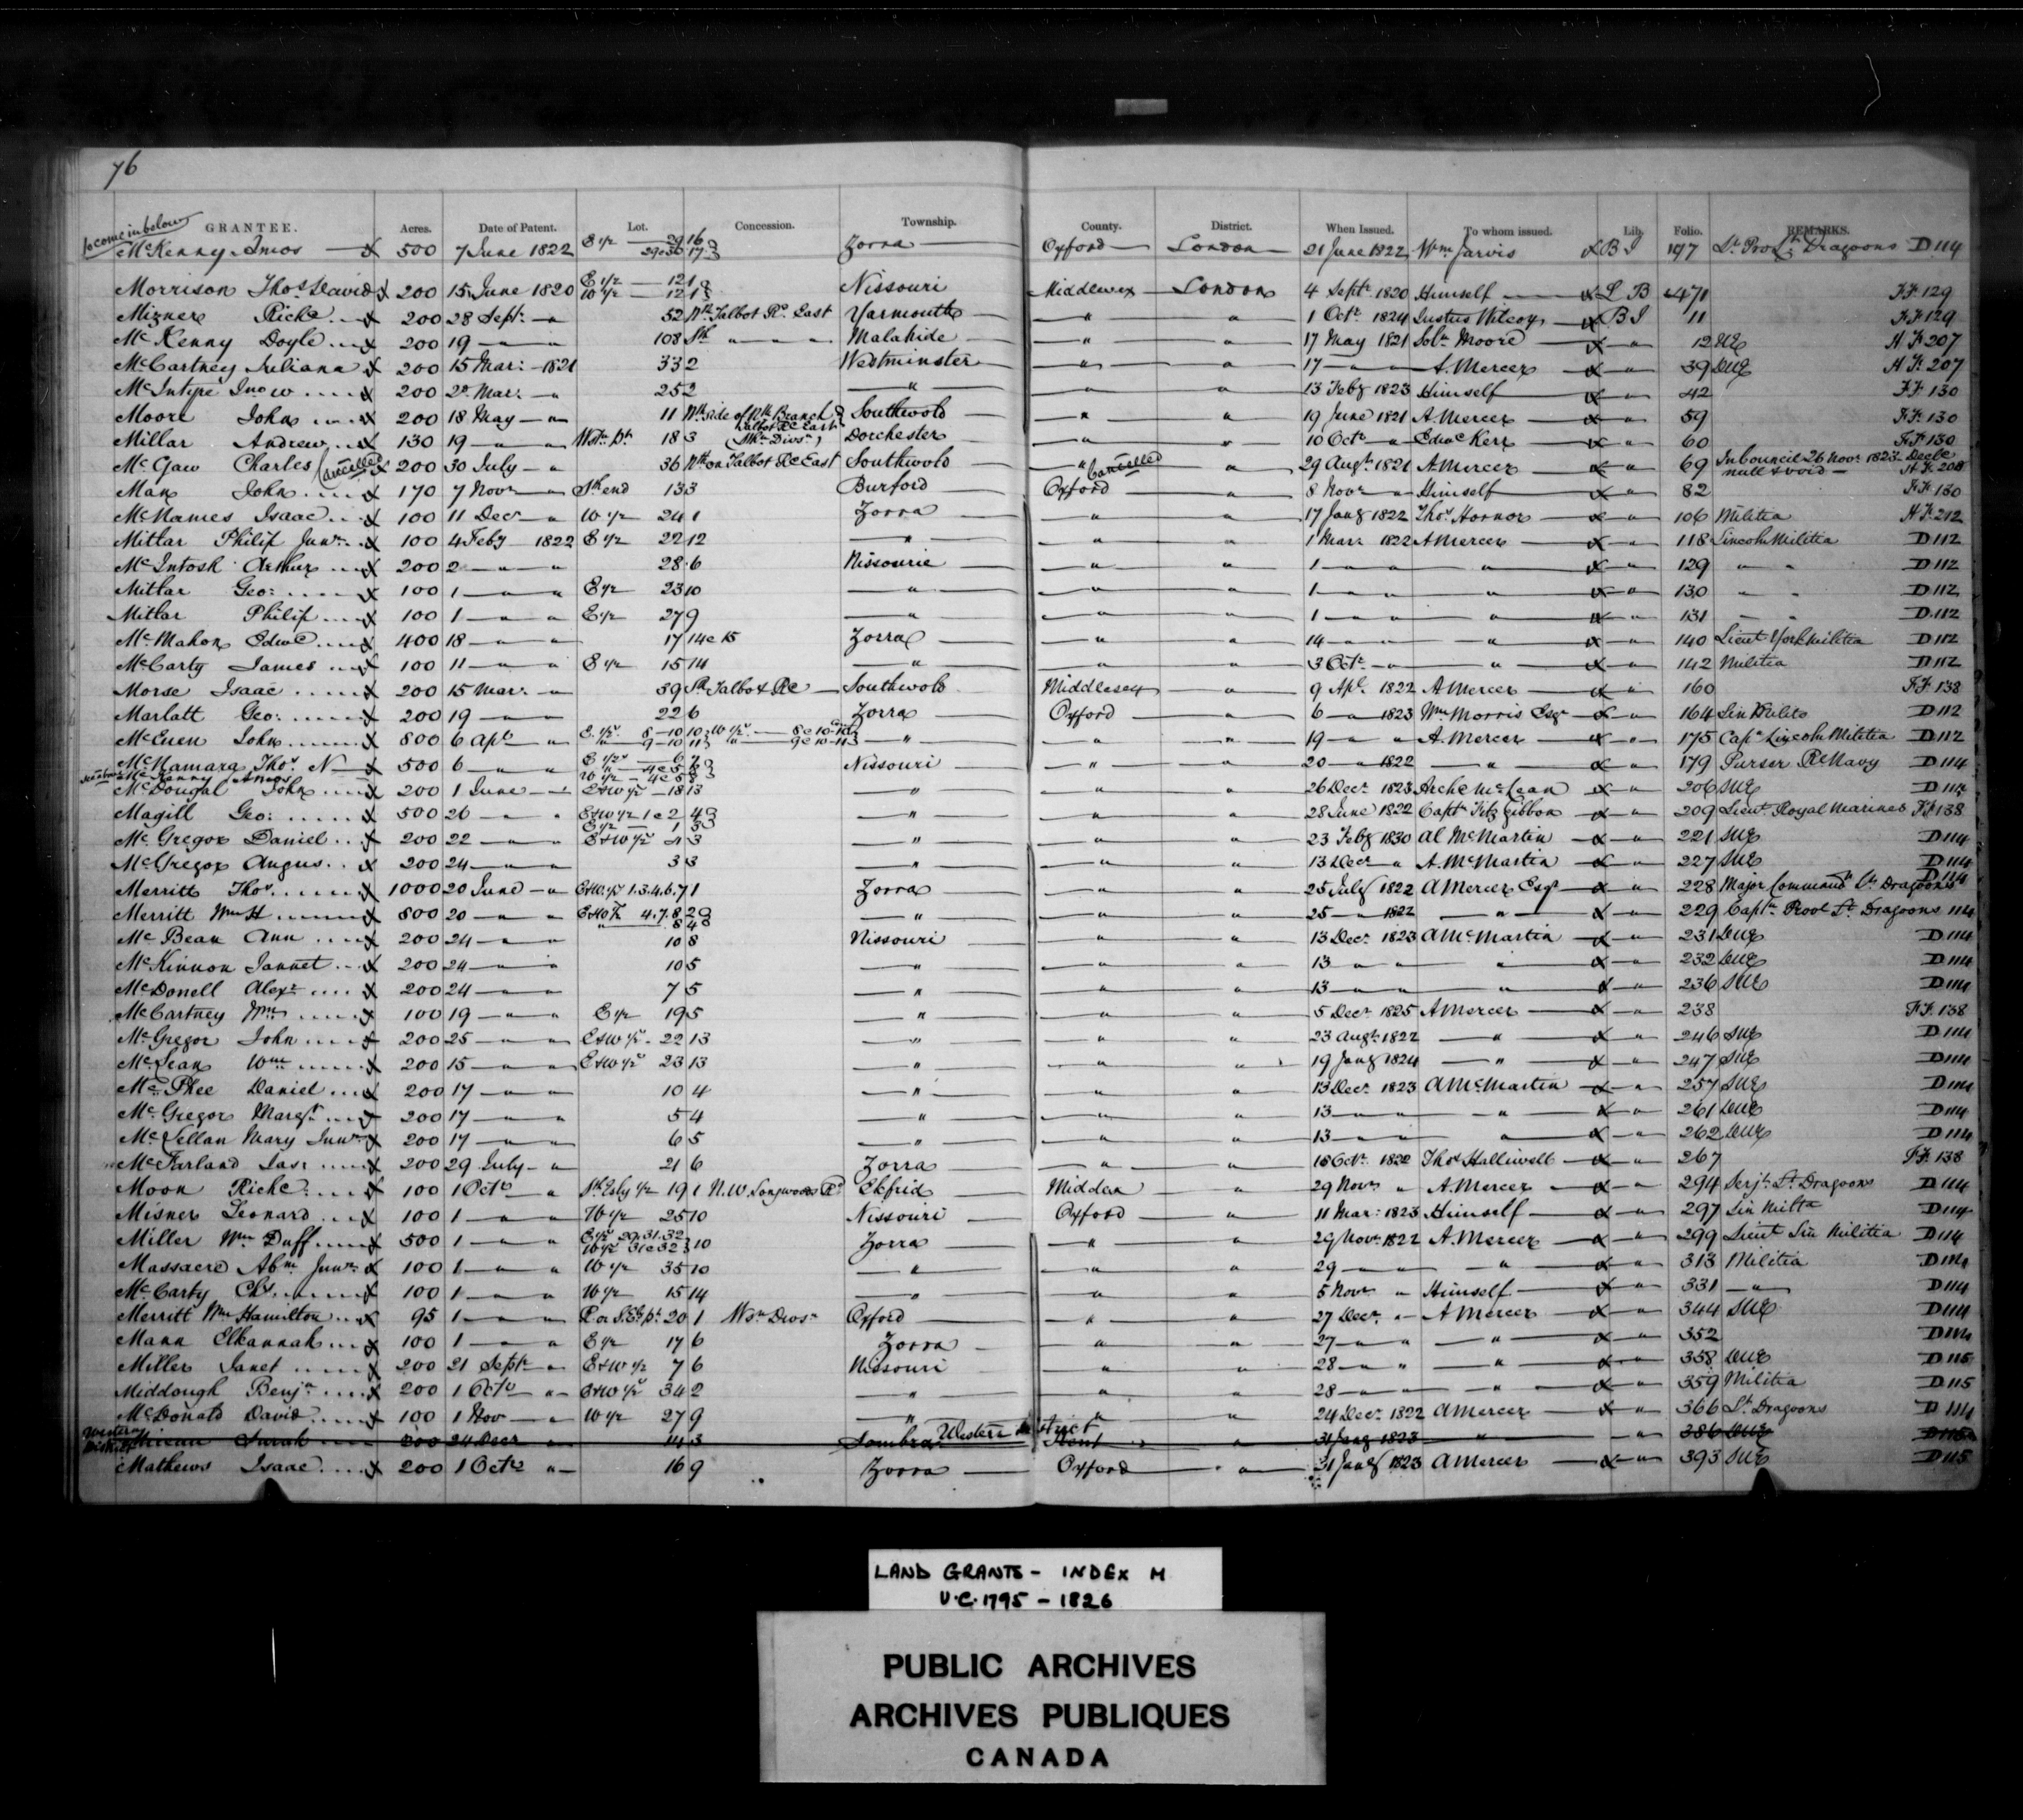 76
GRANTEE. Acres. Date of Patent. Lot. Concession. Township. County. District. When Issued. To whom issued. Lib. Folio. REMARKS.
to come in below
McKenny Amos 500 7 June 1822 E 1/2 29 16 29 & 30 17 Zorra Oxford London 21 June 1822 Wm Jarvis B I 197 Lt Dragoons D 114
Morrison Thos David 200 15 June 1820 E 1/2 12 1 W 1/2 12 1 Nissouri Middlesex London 4 Septr 1820 Himself L B 471 F.F. 129
Mizner Richd 200 28 Sept " 52 Nth Talbot Rd East Yarmouth " " 1 Octr 1824 Justus Wilcox B I 11 F.F. 129
McKenny Doyle 200 19 " " 108 Sth " " " Malahide " " 17 May 1821 Soln Moore " 12 UE H.F. 207
McCartney Juliana 200 15 Mar: 1821 33 2 Westminster " " 17 " " A. Mercer " 39 DUE H.F. 207
McIntyre Jno W 200 22 Mar: " 25 2 " " " 13 Feby 1823 Himself " 42 F.F. 130
Moore John 200 18 May " 11 Nth side of Nth Branch Talbot Rd East Southwold " " 19 June 1821 A. Mercer " 59 F.F. 130
Millar Andrew 130 19 " " Wstn Pt 18 3 (Nth Divsn) Dorchester " " 10 Octr " Edwd Kerr " 60 F.F. 130
McGaw Charles (Cancelled) 200 30 July " 36 Nth on Talbot Rd East Southwold " Cancelled " 29 Augt 1821 A Mercer " 69 In Council 26 Novr 1823 Decld null & void H.F. 208
Man John 170 7 Novr " Sth end 13 3 Burford Oxford " 8 Novr " Himself " 82 F.F. 130
McNames Isaac 100 11 Decr " W 1/2 24 1 Zorra " " 17 Jany 1822 Thos Hornor " 106 Militia H.F. 212
Millar Philip Junr 100 4 Feby 1822 E 1/2 22 12 " " " 1 Mar: 1822 A Mercer " 118 Lincoln Militia D 112
McIntosh Arthur 200 2 " " 28 6 Nissourie " " 1 " " " " 129 " " D 112
Millar Geo: 100 1 " " E 1/2 23 10 " " " 1 " " " " 130 " " D 112
Millar Philip 100 1 " " E 1/2 27 9 " " " 1 " " " " 131 " " D 112
McMahon Edwd 400 18 " " 17 14 & 15 Zorra " " 14 " " " " 140 Lieut York Militia D 112
McCarty James 100 11 " " E 1/2 15 14 " " " 3 Octr " " " 142 Militia D 112
Morse Isaac 200 15 Mar: " 39 Sth Talbot Rd Southwold Middlesex " 9 Apl 1822 A Mercer " 160 F.F. 138
Marlatt Geo: 200 19 " " 22 6 Zorra Oxford " 6 " 1823 Wm Morris Esqr " 164 Lin Milita D 112
McEuen John 800 6 Apl " E 1/2 8-10 10 W 1/2 8 & 10-10 " 9-10 11 " 9 & 10-11 " " " 19 " " A. Mercer " 175 Capn Lincoln Militia D 112
McNamara Thos N 500 6 " " Nissouri " " 20 " 1822 " " 179 Purser Rl Navy D 114
see above McKenny Amos
McDougal John 200 1 June " E & W 1/2 18 13 " " " 26 Decr 1823 Archd McLean " 206 SUE D 114
Magill Geo: 500 26 " " E & W 1/2 1 & 2 4 E 1/2 1 5 " " " 28 June 1822 Captn Fitz Gibbon " 209 Lieut Royal Marines F.F. 138
McGregor Daniel 200 22 " " E & W 1/2 3 " " " 23 Feby 1830 Al McMartin " 221 SUE D 114
McGregor Angus 200 24 " " 3 3 " " " 13 Decr " A. McMartin " 227 SUE D 114
Merritt Thos 1000 20 June " E & W 1/2 1.3.4.6.7 1 Zorra " " 25 July 1822 A Mercer Esqr " 228 Major Commandt Lt Dragoons D 114
Merritt Wm H 800 20 " " 4.7.8 2 " 8 4 " " " 25 " 1822 " " 229 Captn Provl Lt Dragoons 114
McBean Ann 200 24 " " 10 8 Nissouri " " 13 Decr 1823 A McMartin " 231 DUE D 114
McKinnon Jannet 200 24 " " 10 5 " " " 13 " " " " 232 DUE D 114
McDonell Alexr 200 24 " " 7 5 " " " 13 " " " " 236 SUE D 114
McCartney Wm 100 19 " " E 1/2 19 5 " " " 5 Decr 1825 A Mercer " 238 F.F. 138
McGregor John 200 25 " " E & W 1/2 22 13 " " " 23 Augt 1822 " " 246 SUE D 114
McLean Wm 200 15 " " E & W 1/2 23 13 " " " 19 Jany 1824 " " 247 SUE D 114
McPhee Daniel 200 17 " " 10 4 " " " 13 Decr 1823 A McMartin " 257 SUE D 114
McGregor Margt 200 17 " " 5 4 " " " 13 " " " " 261 DUE D 114
McLellan Mary Junr 200 17 " " 6 5 " " " 13 " " " " 262 DUE D 114
McFarland Jas: 200 29 July " 21 6 Zorra " " 15 Octr 1822 Thos Halliwell " 267 F.F. 138
Moon Richd 100 1 Octr " Sth Esly 1/2 19 1 N.W. Longwoods Rd Ekfrid Middsx " 29 Novr " A. Mercer " 294 Serjt Lt Dragoons D 114
Misner Leonard 100 1 " " W 1/2 25 10 Nissouri Oxford " 11 Mar: 1823 Himself " 297 Lin Milta D 114
Miller Wm Duff 500 1 " " E 1/2 29.31.32 W 1/2 31 & 32 10 Zorra " " 29 Novr 1822 A. Mercer " 299 Lieut Lin Militia D 114
Massacre Abm Junr 100 1 " " W 1/2 35 10 " " " 29 " " " " 313 Militia D 114
McCarty Chs 100 1 " " W 1/2 15 14 " " " 5 Novr " Himself " 331 " D 114
Merritt Wm Hamilton 95 1 " " 20 1 Wn Divsn Oxford " " 27 Decr " A Mercer " 344 SUE D 114
Mann Elkannah 100 1 " " E 1/2 17 6 Zorra " " 27 " " " " 352 D 114
Miller Janet 200 21 Septr " E & W 1/2 7 6 Nissouri " " 28 " " " " 358 DUE D 115
Middough Benjn 200 1 Octr " E & W 1/2 34 2 " " " 28 " " " " 359 Militia D 115
McDonald David 100 1 Nov " W 1/2 27 9 " " " 24 Decr 1822 A Mercer " 366 Lt Dragoons D 114
Western District Sarah 200 24 Decr 14 3 Sombra Western District Kent " 31 Jany 1823 " " 386 DUE D 115
Mathews Isaac 200 1 Octr " 16 9 Zorra Oxford " 31 Jany 1823 A Mercer " 393 SUE D 115
LAND GRANTS - INDEX M
U.C. 1795 - 1826
PUBLIC ARCHIVES
ARCHIVES PUBLIQUES
CANADA